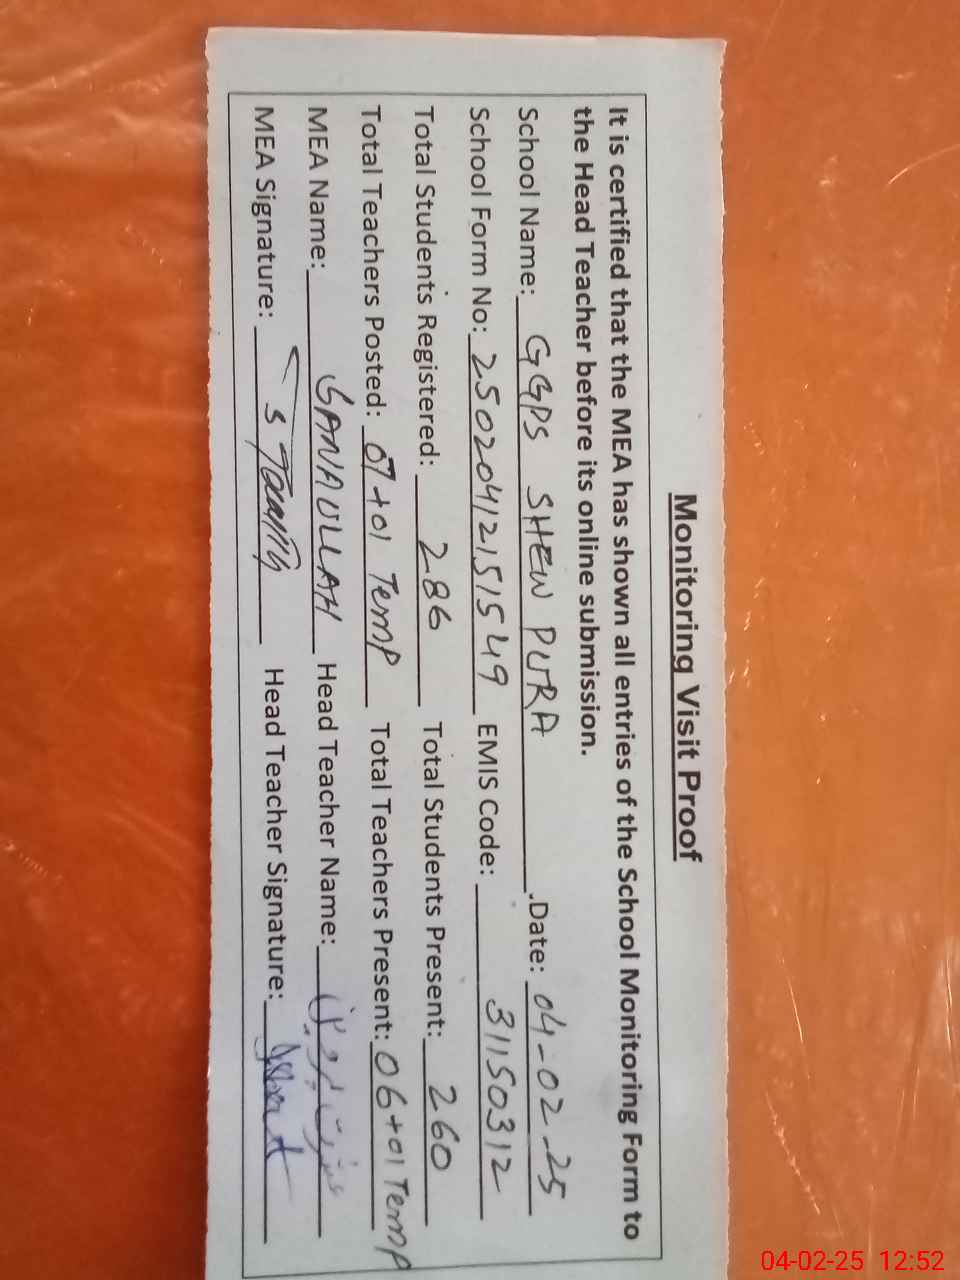 Monitoring Visit Proof
It is certified that the MEA has shown all entries of the School Monitoring Form to
the Head Teacher before its online submission.
School Name: GGPS SHEW PURA .Date: 04-02-25
School Form No: 25020412151549 EMIS Code: 31150312
Total Students Registered: 286 Total Students Present: 260
Total Teachers Posted: 07+01 Temp Total Teachers Present: 06+01 Temp
MEA Name: SANAULLAH Head Teacher Name:
MEA Signature: Head Teacher Signature:
04-02-25 12:52